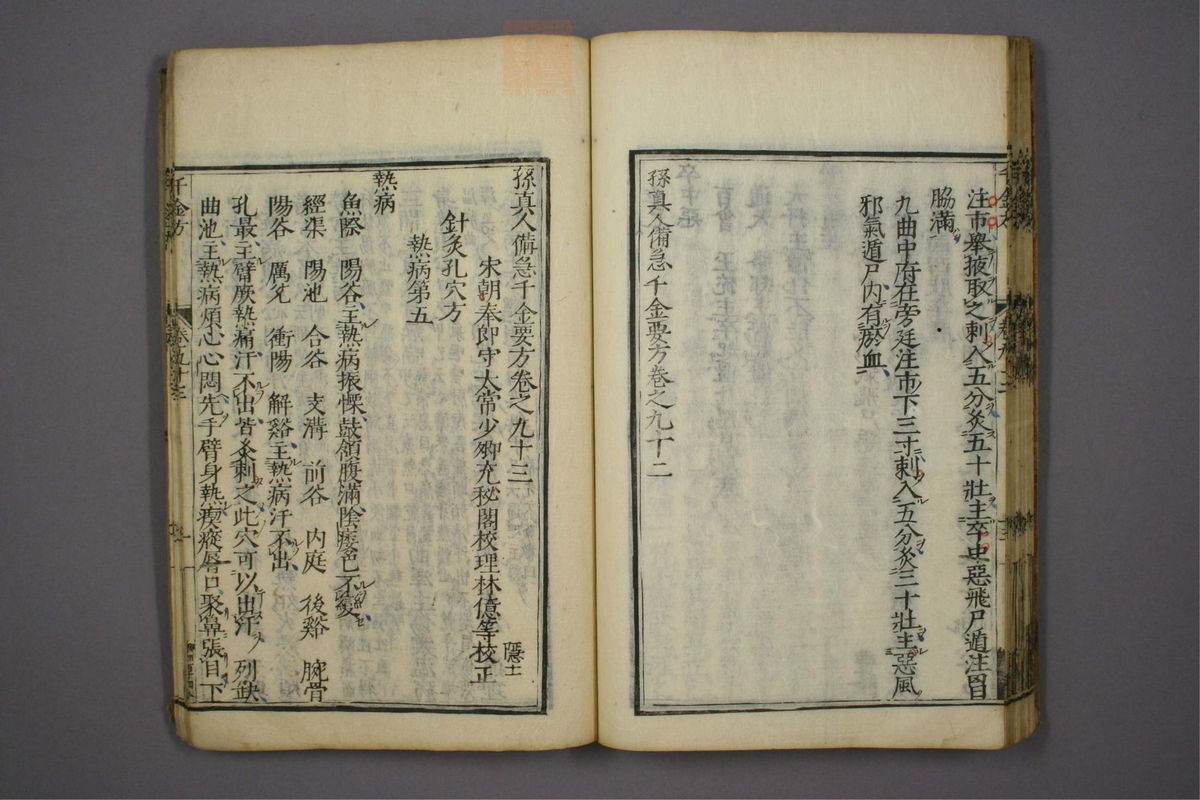 注市舉掖取之刺入五分灸五十壯主卒忠惡飛尸遁注胷
脇滿
九曲中府在旁廷注市下三寸刺入五分灸三十壯主惡風
邪氣遁尸内有瘀血
孫真人備急千金要方卷之九十二
孫真人備急千金要方卷之九十三
隱士
宋朝奉郎守太常少卿充秘閣校理林億等校正
針灸孔穴方
熱病第五
熱病
魚際 陽谷主熱病振慄鼓頷腹滿陰痿色不變
經渠 陽池 合谷 支溝 前谷 内庭 後谿 腕骨
陽谷 厲兌 衝陽 解谿主熱病汗不出
孔最主臂厥熱痛汗不出皆灸刺之此穴可以出汗 列缺
曲池主熱病煩心心悶先手臂身熱瘈瘲唇口聚鼻張目下
千金方